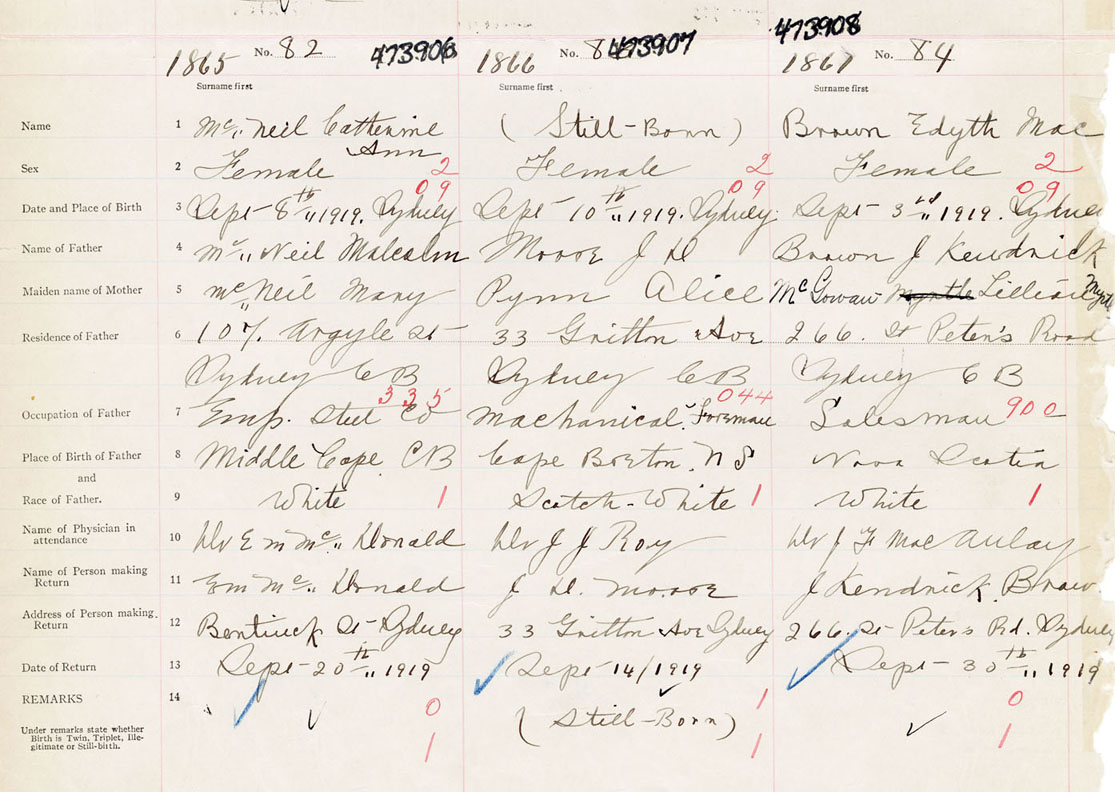 1865 No. 82 473906 1866 No. 8 473907 1867 No. 84 473908
Surname first Surname first Surname first
Name 1 Mc„ Neil Catherine (Still-Born) Brown Edyth Mae
Ann
Sex 2 Female 2 Female 2 Female 2
09 09 09
Date and Place of Birth 3 Sept 8th„ 1919. Sydney Sept 10th„ 1919. Sydney. Sept 3rd„ 1919. Sydney
Name of Father 4 Mc„ Neil Malcolm Moore J D Brown J Kendrick
Maiden name of Mother 5 Mc„ Neil Mary Pynn Alice McGowan Myrtle Lillian Myrtle
Residence of Father 6 107. Argyle St 33 Gritton Ave 266. St Peter's Road
Sydney CB Sydney CB Sydney CB
335 044 900
Occupation of Father 7 Emp. Steel Co Machanical. Foreman Salesman
Place of Birth of Father 8 Middle Cape CB Cape Breton. NS Nova Scotia
and
Race of Father. 9 White 1 Scotch-White 1 White 1
Name of Physician in
attendance 10 Dr E M Mc„ Donald Dr J J Roy Dr J F MacAulay
Name of Person making
Return 11 E M Mc„ Donald J D. Moore J Kendrick Brown
Address of Person making
Return 12 Bentinck St Sydney 33 Gritton Ave Sydney 266. St Peter's Rd. Sydney
Date of Return 13 Sept-20th„ 1919 Sept 14/1919 Sept-30th„ 1919
REMARKS 14 0 1 0
(Still-Born)
Under remarks state whether
Birth is Twin, Triplet, Ille-
gitimate or Still-birth.
1 1 1